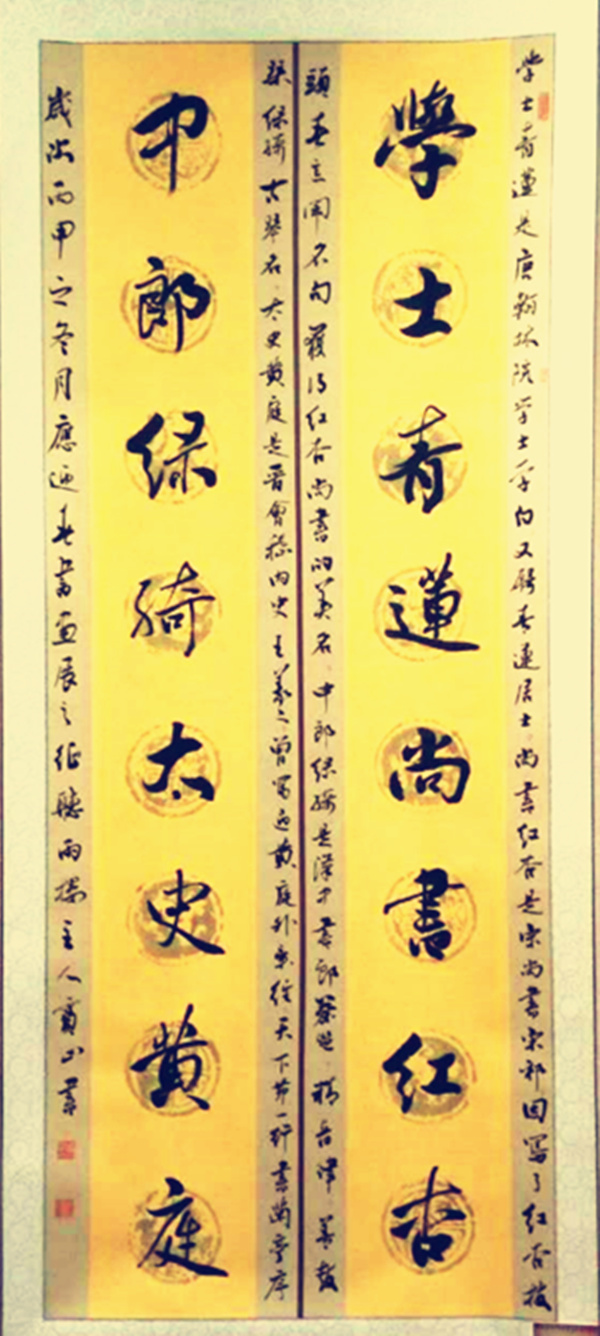 學士青蓮尚書紅杏
中郎绿綺太史黄庭
學士青蓮是唐翰林院學士李白又號青蓮居士尚書紅杏是宋尚書宋祁因寫了紅杏枝
頭春意闹名句獲得紅杏尚書的美名中郎绿綺是漢中郎蔡邕精音律善鼓
琴绿綺古琴名太史黄庭是晋會稽内史王羲之曾寫過黄庭外天下第一行書蘭亭序
歲次丙申之冬月應迎春書画展之征聽雨樓主人書